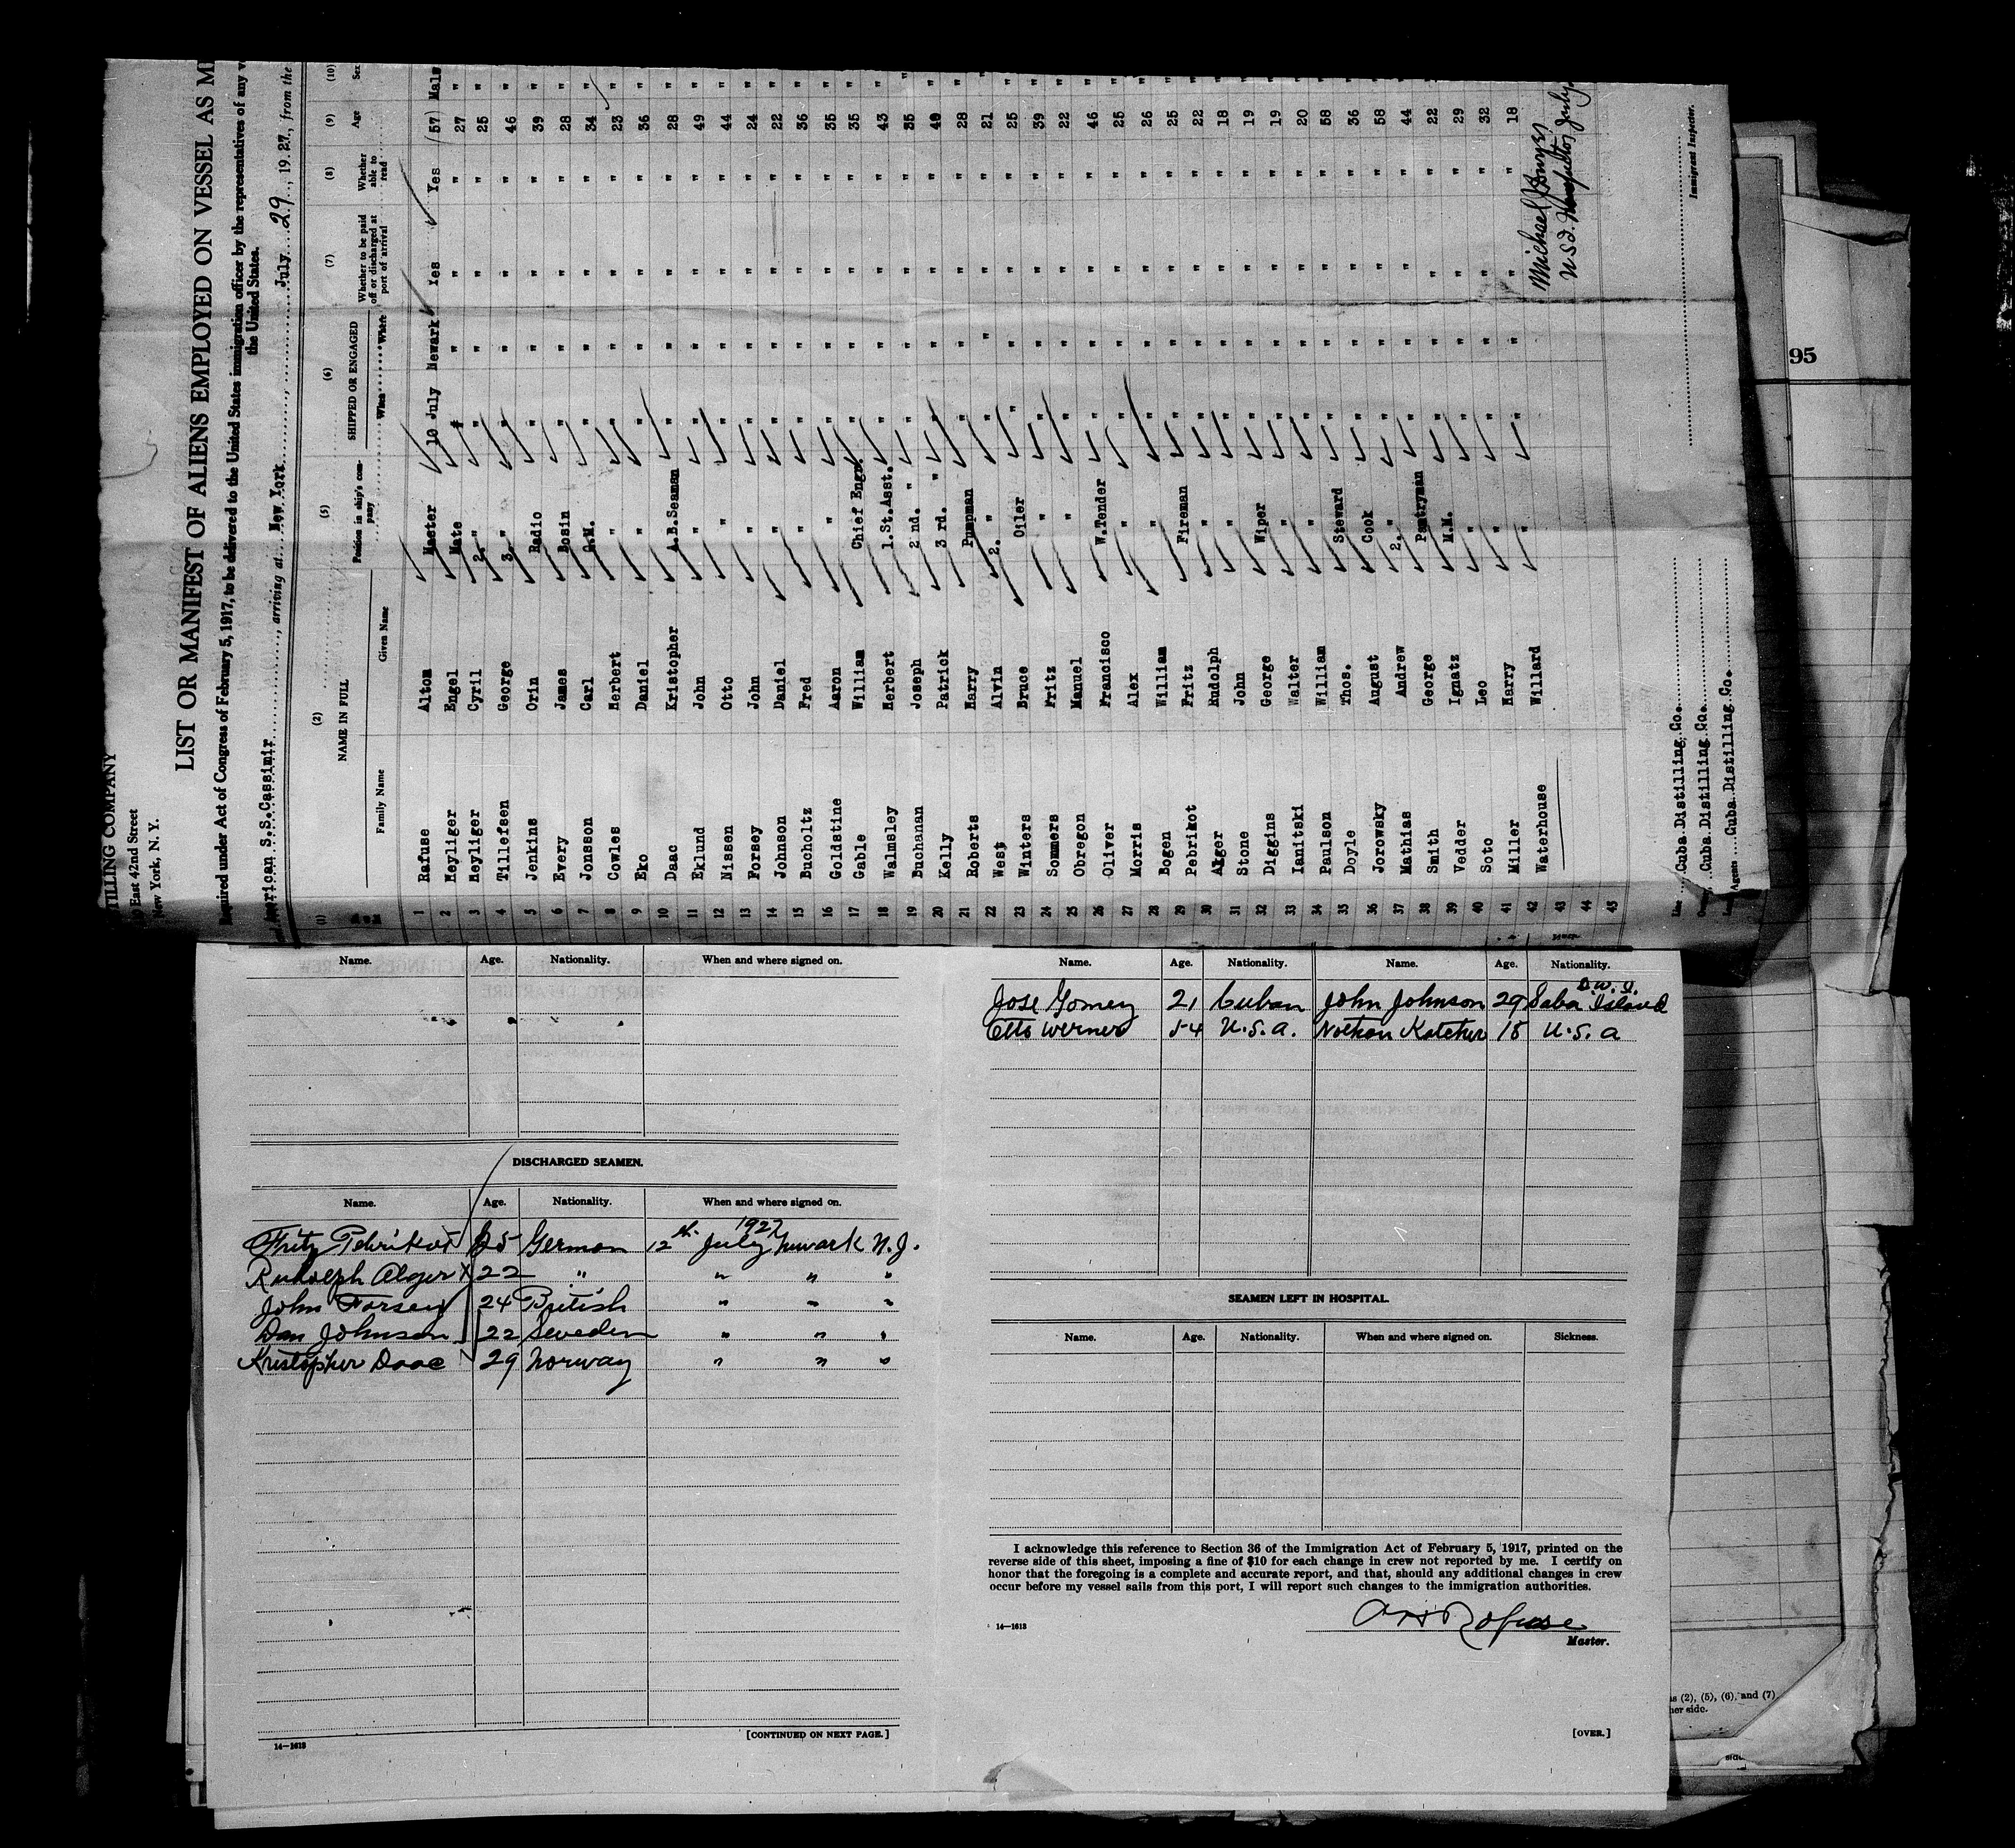 TILLING COMPANY
East 42nd Street
New York, N. Y.
LIST OR MANIFEST OF ALIENS EMPLOYED ON VESSEL AS M
Required under Act of Congress of February 5, 1917, to be delivered to the United States immigration officer by the representatives of any v
the United States.
American S.S.Cassimir, arriving at New York July 29, 1927, from the
(1) (2) (5) (6) (7) (8) (9) (10)
NAME IN FULL Position in ship's company SHIPPED OR ENGAGED Whether to be paid off or discharged at port of arrival Whether able to read Age Sex
Family Name Given Name When Where
1 Rafuse Alton Master 10 July Newark Yes Yes 57 Male
2 Heyliger Engel Mate " " " " 27 "
3 Heyliger Cyril 2. " " " " " 25 "
4 Tillefsen George 3. " " " " " 46 "
5 Jenkins Orin Radio " " " " 39 "
6 Every James Bosin " " " " 28 "
7 Jonsson Carl Q.M. " " " " 34 "
8 Cowles Herbert " " " " " 23 "
9 Eko Daniel " " " " " 36 "
10 Daac Kristopher A.B.Seaman " " " " 28 "
11 Eklund John " " " " " 49 "
12 Nissen Otto " " " " " 44 "
13 Forsey John " " " " " 24 "
14 Johnson Daniel " " " " " 22 "
15 Bucholtz Fred " " " " " 36 "
16 Goldstine Aaron " " " " " 35 "
17 Gable William Chief Engr. " " " " 35 "
18 Walmsley Herbert 1.St.Asst. " " " " 43 "
19 Buchanan Joseph 2 nd. " " " " " 35 "
20 Kelly Patrick 3 rd. " " " " " 40 "
21 Roberts Harry Pumpman " " " " 28 "
22 West Alvin 2. " " " " " 21 "
23 Winters Bruce Oiler " " " " 25 "
24 Sommers Fritz " " " " " 39 "
25 Obregon Manuel " " " " " 22 "
26 Oliver Francisco W.Tender " " " " 46 "
27 Morris Alex " " " " " 25 "
28 Bogen William " " " " " 26 "
29 Pebrikot Fritz Fireman " " " " 25 "
30 Alger Rudolph " " " " " 22 "
31 Stone John " " " " " 18 "
32 Diggins George Wiper " " " " 19 "
33 Ianitski Walter " " " " " 19 "
34 Paulson William " " " " " 20 "
35 Doyle Thos. Steward " " " " 58 "
36 Jorowsky August Cook " " " " 36 "
37 Mathias Andrew 2. " " " " " 58 "
38 Smith George Pantryman " " " " 44 "
39 Vedder Ignatz M.M. " " " " 22 "
40 Soto Leo " " " " " 29 "
41 Miller Harry " " " " " 32 "
42 Waterhouse Willard " " " " " 18 "
43
44
45
Michael
July
Line Cuba Distilling Co.
Cuba Distilling Co.
Agents Cuba Distilling Co.
Immigrant Inspector.
95
Name. Age. Nationality. When and where signed on.
DISCHARGED SEAMEN.
Name. Age. Nationality. When and where signed on.
Fritz Pebrikot 25 German 12th July 1927 Newark N.J.
Rudolph Alger X 22 " " " "
John Forsey 24 British " " "
Dan Johnson 22 Sweden " " "
Kristopher Daac 29 Norway " " "
[CONTINUED ON NEXT PAGE.]
14—1613
Name. Age. Nationality. Name. Age. Nationality.
Jose Gomez 21 Cuban John Johnson 29 Saba Island D.W.I.
Otto Werner 54 U.S.A. Nathan Katcher 18 U.S.A
SEAMEN LEFT IN HOSPITAL.
Name. Age. Nationality. When and where signed on. Sickness.
I acknowledge this reference to Section 36 of the Immigration Act of February 5, 1917, printed on the
reverse side of this sheet, imposing a fine of $10 for each change in crew not reported by me. I certify on
honor that the foregoing is a complete and accurate report, and that, should any additional changes in crew
occur before my vessel sails from this port, I will report such changes to the immigration authorities.
A H Rafuse
Master.
14—1613
[OVER.]
s (2), (5), (6), and (7)
her side.
side.